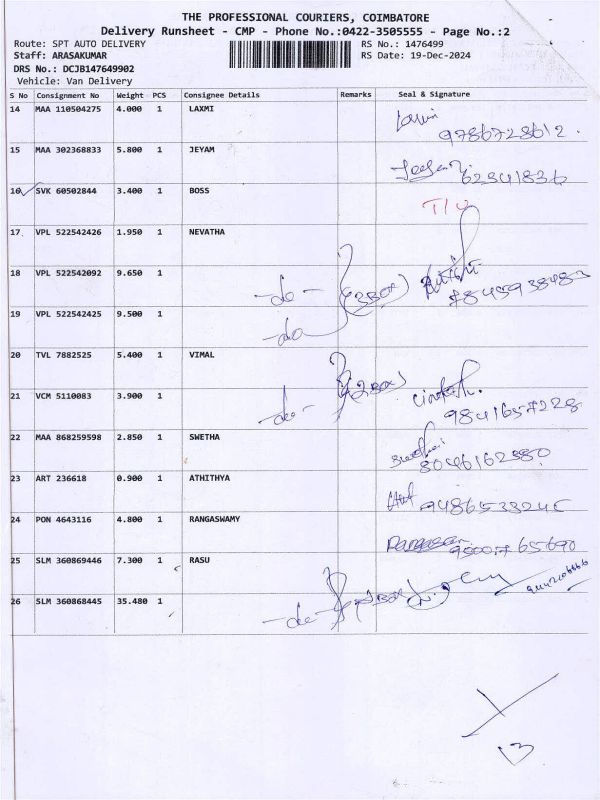 THE PROFESSIONAL COURIERS, COIMBATORE
Delivery Runsheet - CMP - Phone No.:0422-3505555 - Page No.:2
Route: SPT AUTO DELIVERY RS No.: 1476499
Staff: ARASAKUMAR RS Date: 19-Dec-2024
DRS No.: DCJB147649902
Vehicle: Van Delivery
S No Consignment No Weight PCS Consignee Details Remarks Seal & Signature
14 MAA 110504275 4.000 1 LAXMI
9786728612
15 MAA 302368833 5.800 1 JEYAM
16 SVK 60502844 3.400 1 BOSS
17 VPL 522542426 1.950 1 NEVATHA
18 VPL 522542092 9.650 1 -do-
19 VPL 522542425 9.500 1 -do
20 TVL 7882525 5.400 1 VIMAL
21 VCM 5110083 3.900 1 -do-
9841657228
22 MAA 868259598 2.850 1 SWETHA
23 ART 236618 0.900 1 ATHITHYA
24 PON 4643116 4.800 1 RANGASWAMY
25 SLM 360869446 7.300 1 RASU
26 SLM 360868445 35.480 1 -do-